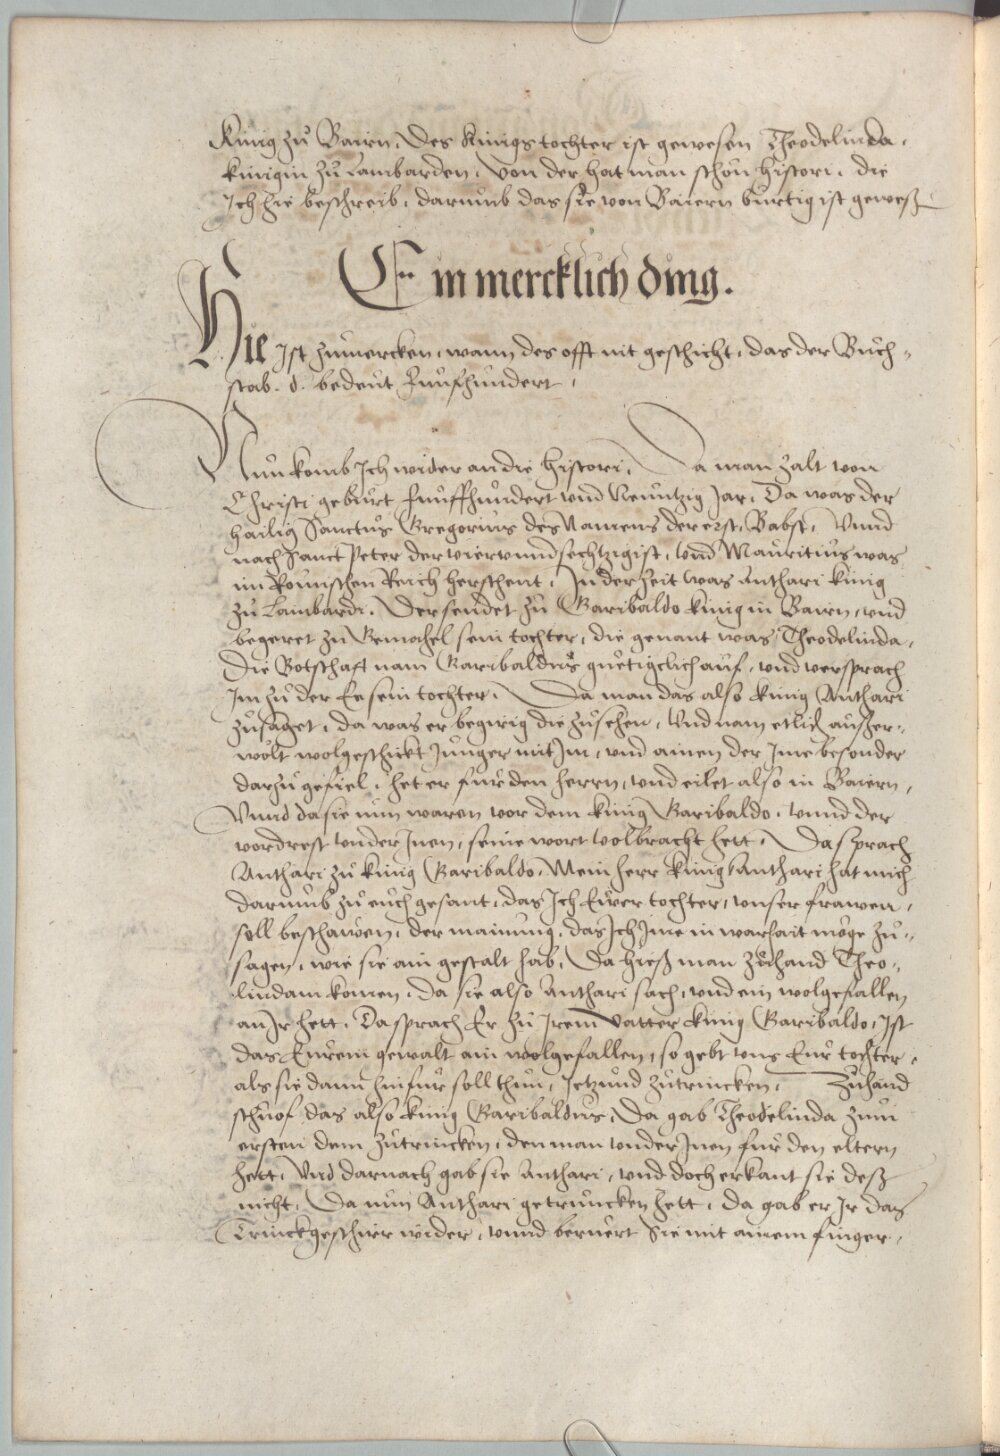 König zů Bairn, Des Künigs tochter ist gewesen Theodelinda,
künigin zů Lambarden, Von der hat man schön histori, die
Ich hie beschreib, darumb das sie von Baiern bürtig ist geweß
Ein mercklich ding.
Hie Ist zůmercken, wann des offt nit geschicht, das der Bůch-
stab .d. bedeüt Fünfhundert,
Nun komb Ich wider an die histori, Da man zalt von
Christi geburt fünffhundert vnd Neüntzig Jar, Da was der
hailig Sanctus Gregorius des Namens der erst, Babst, Vnnd
nach Sanct Peter der viervnndsechtzigist, vnd Mauritius was
im Römischen Reich herschent, In der Zeit was Anthari künig
zů Lambardi, Der sendet zů Garibaldo künig in Bairn, vnd
begeret zu Gemahel sein tochter, die genant was Theodelinda,
Die Botschaft nam Garibaldus guetigclich auf, vnd versprach
Im zů der Ee sein tochter, Da man das also künig Anthari
zůsaget, da was er begirig die zůsehen, Vnd nam etlich außer-
wölt wolgeschickt Junger mit Im, vnd ainen der Ime besonder
darzů gefiel, het er für den herrn, vnd eilet also in Baiern,
Vnnd da sie nun waren vor dem künig Garibaldo, vnnd der
vordrest vnder Inen, seine wort volbracht hett, Da sprach
Anthari zů künig Garibaldo, Mein herr künig Anthari hat mich
darumb zů euch gesant, das Ich Eüer tochter, vnser frawen,
soll beschawen, der mainung, das Ich Ime in warhait möge zů-
sagen, wie sie ain gestalt hab, Da hieß man zůhand Theo-
lindam komen, Da sie also Anthari sach, vnd ein wolgefallen
an Ir hett, Da sprach Er zů Irem Vatter künig Garibaldo, Ist
das Eürem gewalt ain wolgefallen, so gebt vns Eür tochter,
als sie dann hinfür soll thün, Jetzund zůtrincken, Zůhand
schůof das also künig Garibaldus, Da gab Theodelinda zum
ersten dem zůtrincken, den man vnder Inen für den eltern
hett, Vnd darnach gab sie Anthari, vnd doch erkant sie deß
nicht, Da nun Anthari getruncken hett, da gab er Ir das
Trinckgeschirr wider, vnnd berüert Sie mit ainem finger,